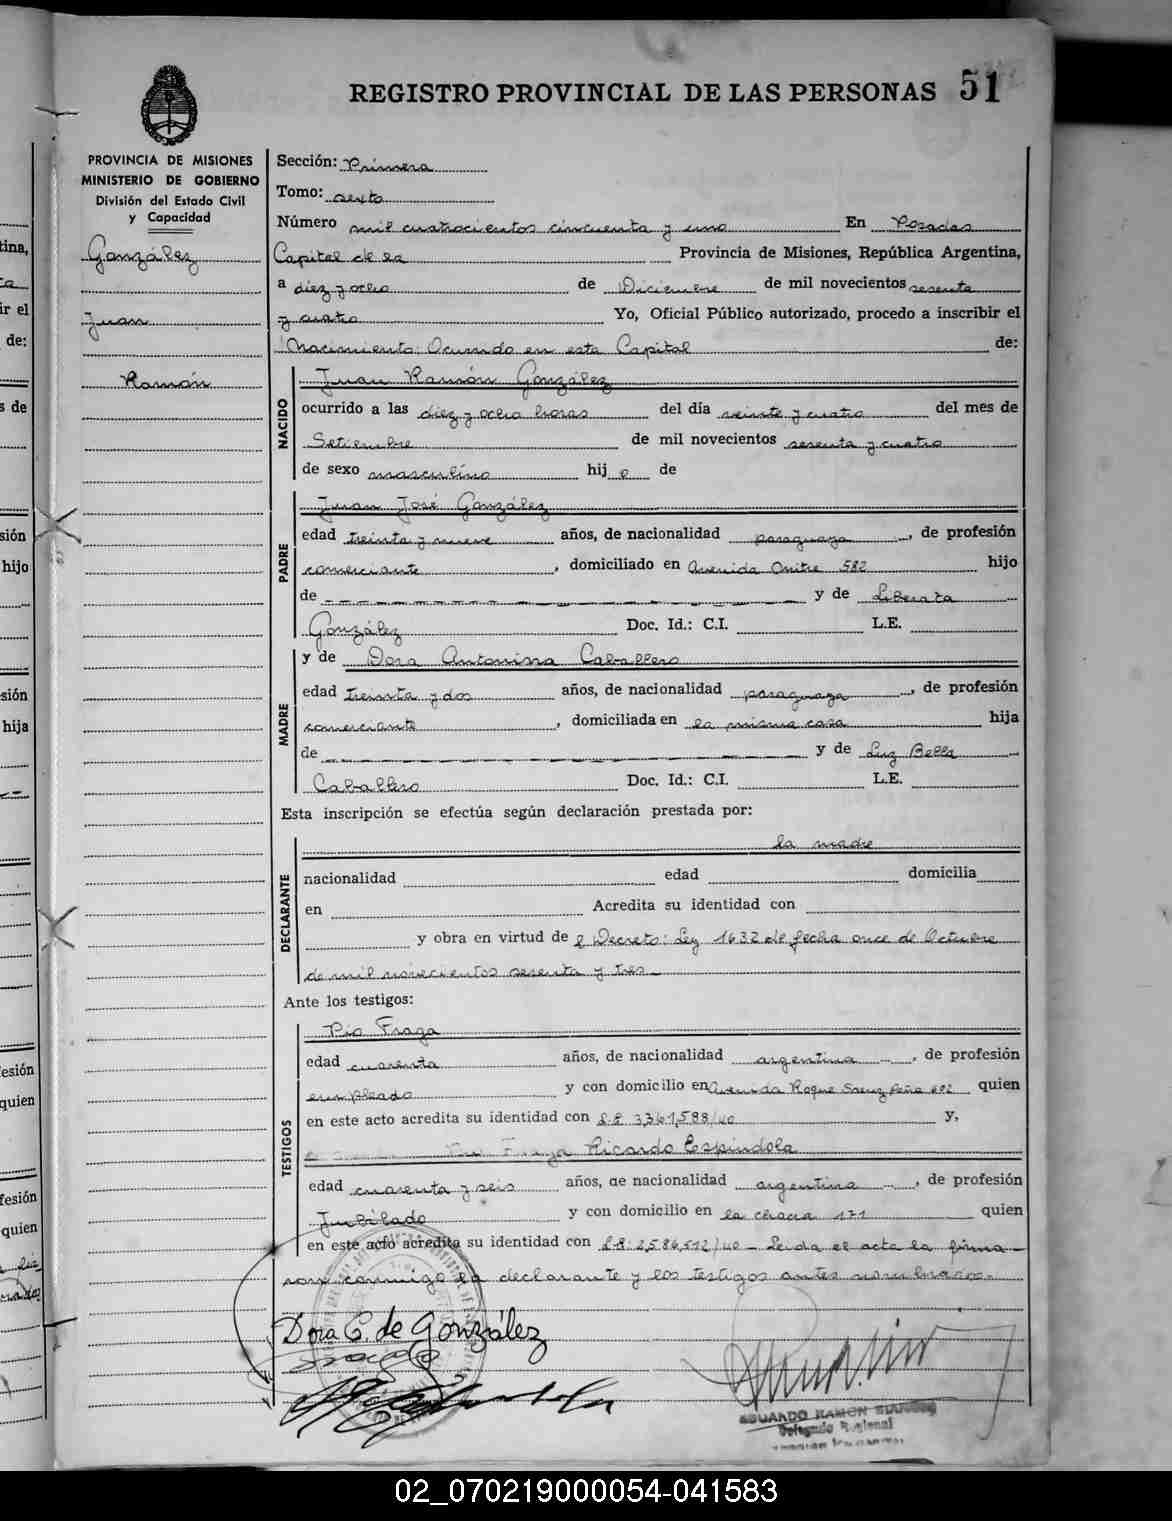 REGISTRO PROVINCIAL DE LAS PERSONAS 51
PROVINCIA DE MISIONES
MINISTERIO DE GOBIERNO
División del Estado Civil
y Capacidad
González
Juan
Ramón
Sección: Primera
Tomo: sexto
Número mil cuatrocientos cincuenta y uno En Posadas
Capital de la Provincia de Misiones, República Argentina,
a diez y ocho de Diciembre de mil novecientos sesenta
y cuatro Yo, Oficial Público autorizado, procedo a inscribir el
Nacimiento: Ocurrido en esta Capital de:
NACIDO
Juan Ramón González
ocurrido a las diez y ocho horas del día veinte y cuatro del mes de
Setiembre de mil novecientos sesenta y cuatro
de sexo masculino hijo de
PADRE
Juan José González
edad treinta y nueve años, de nacionalidad paraguaya, de profesión
comerciante, domiciliado en Avenida Mitre 582 hijo
de y de Liberata
González Doc. Id.: C.I. L.E.
MADRE
y de Dora Antonina Caballero
edad treinta y dos años, de nacionalidad paraguaya, de profesión
comerciante, domiciliada en la misma casa hija
de y de Luz Bella
Caballero Doc. Id.: C.I. L.E.
Esta inscripción se efectúa según declaración prestada por:
DECLARANTE
la madre
nacionalidad edad domicilia
en Acredita su identidad con
y obra en virtud de l Decreto: Ley 1632 de fecha once de Octubre
de mil novecientos sesenta y tres
Ante los testigos:
TESTIGOS
Pío Fraga
edad cuarenta años, de nacionalidad argentina, de profesión
empleado y con domicilio en Avenida Roque Saenz Peña 692 quien
en este acto acredita su identidad con L.E. 3,361,588/40 y,
Pío Fraga Ricardo Espíndola
edad cuarenta y seis años, de nacionalidad argentina, de profesión
Jubilado y con domicilio en la chacra 171 quien
en este acto acredita su identidad con L.E. 2,586,512/40 - Leida el acta la firma-
ron conmigo la declarante y los testigos antes nombrados.-
Dora C. de González
EDUARDO RAMON
Delegado Regional
02_070219000054-041583